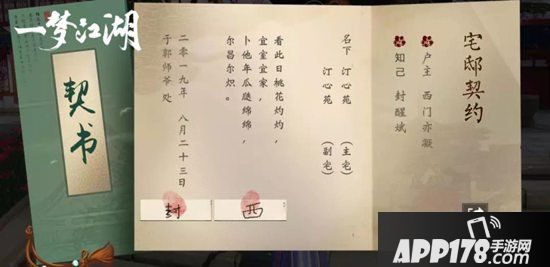 一梦江湖
契书
宅邸契约
户主 西门亦凝
知己 封醒斌
名下 汀心苑 (主宅)
汀心苑 (副宅)
看此日桃花灼灼，
宜室宜家，
卜他年瓜瓞绵绵，
尔昌尔炽。
二零一九年 八月二十三日
于郭师爷处
封
西
APP178手游网